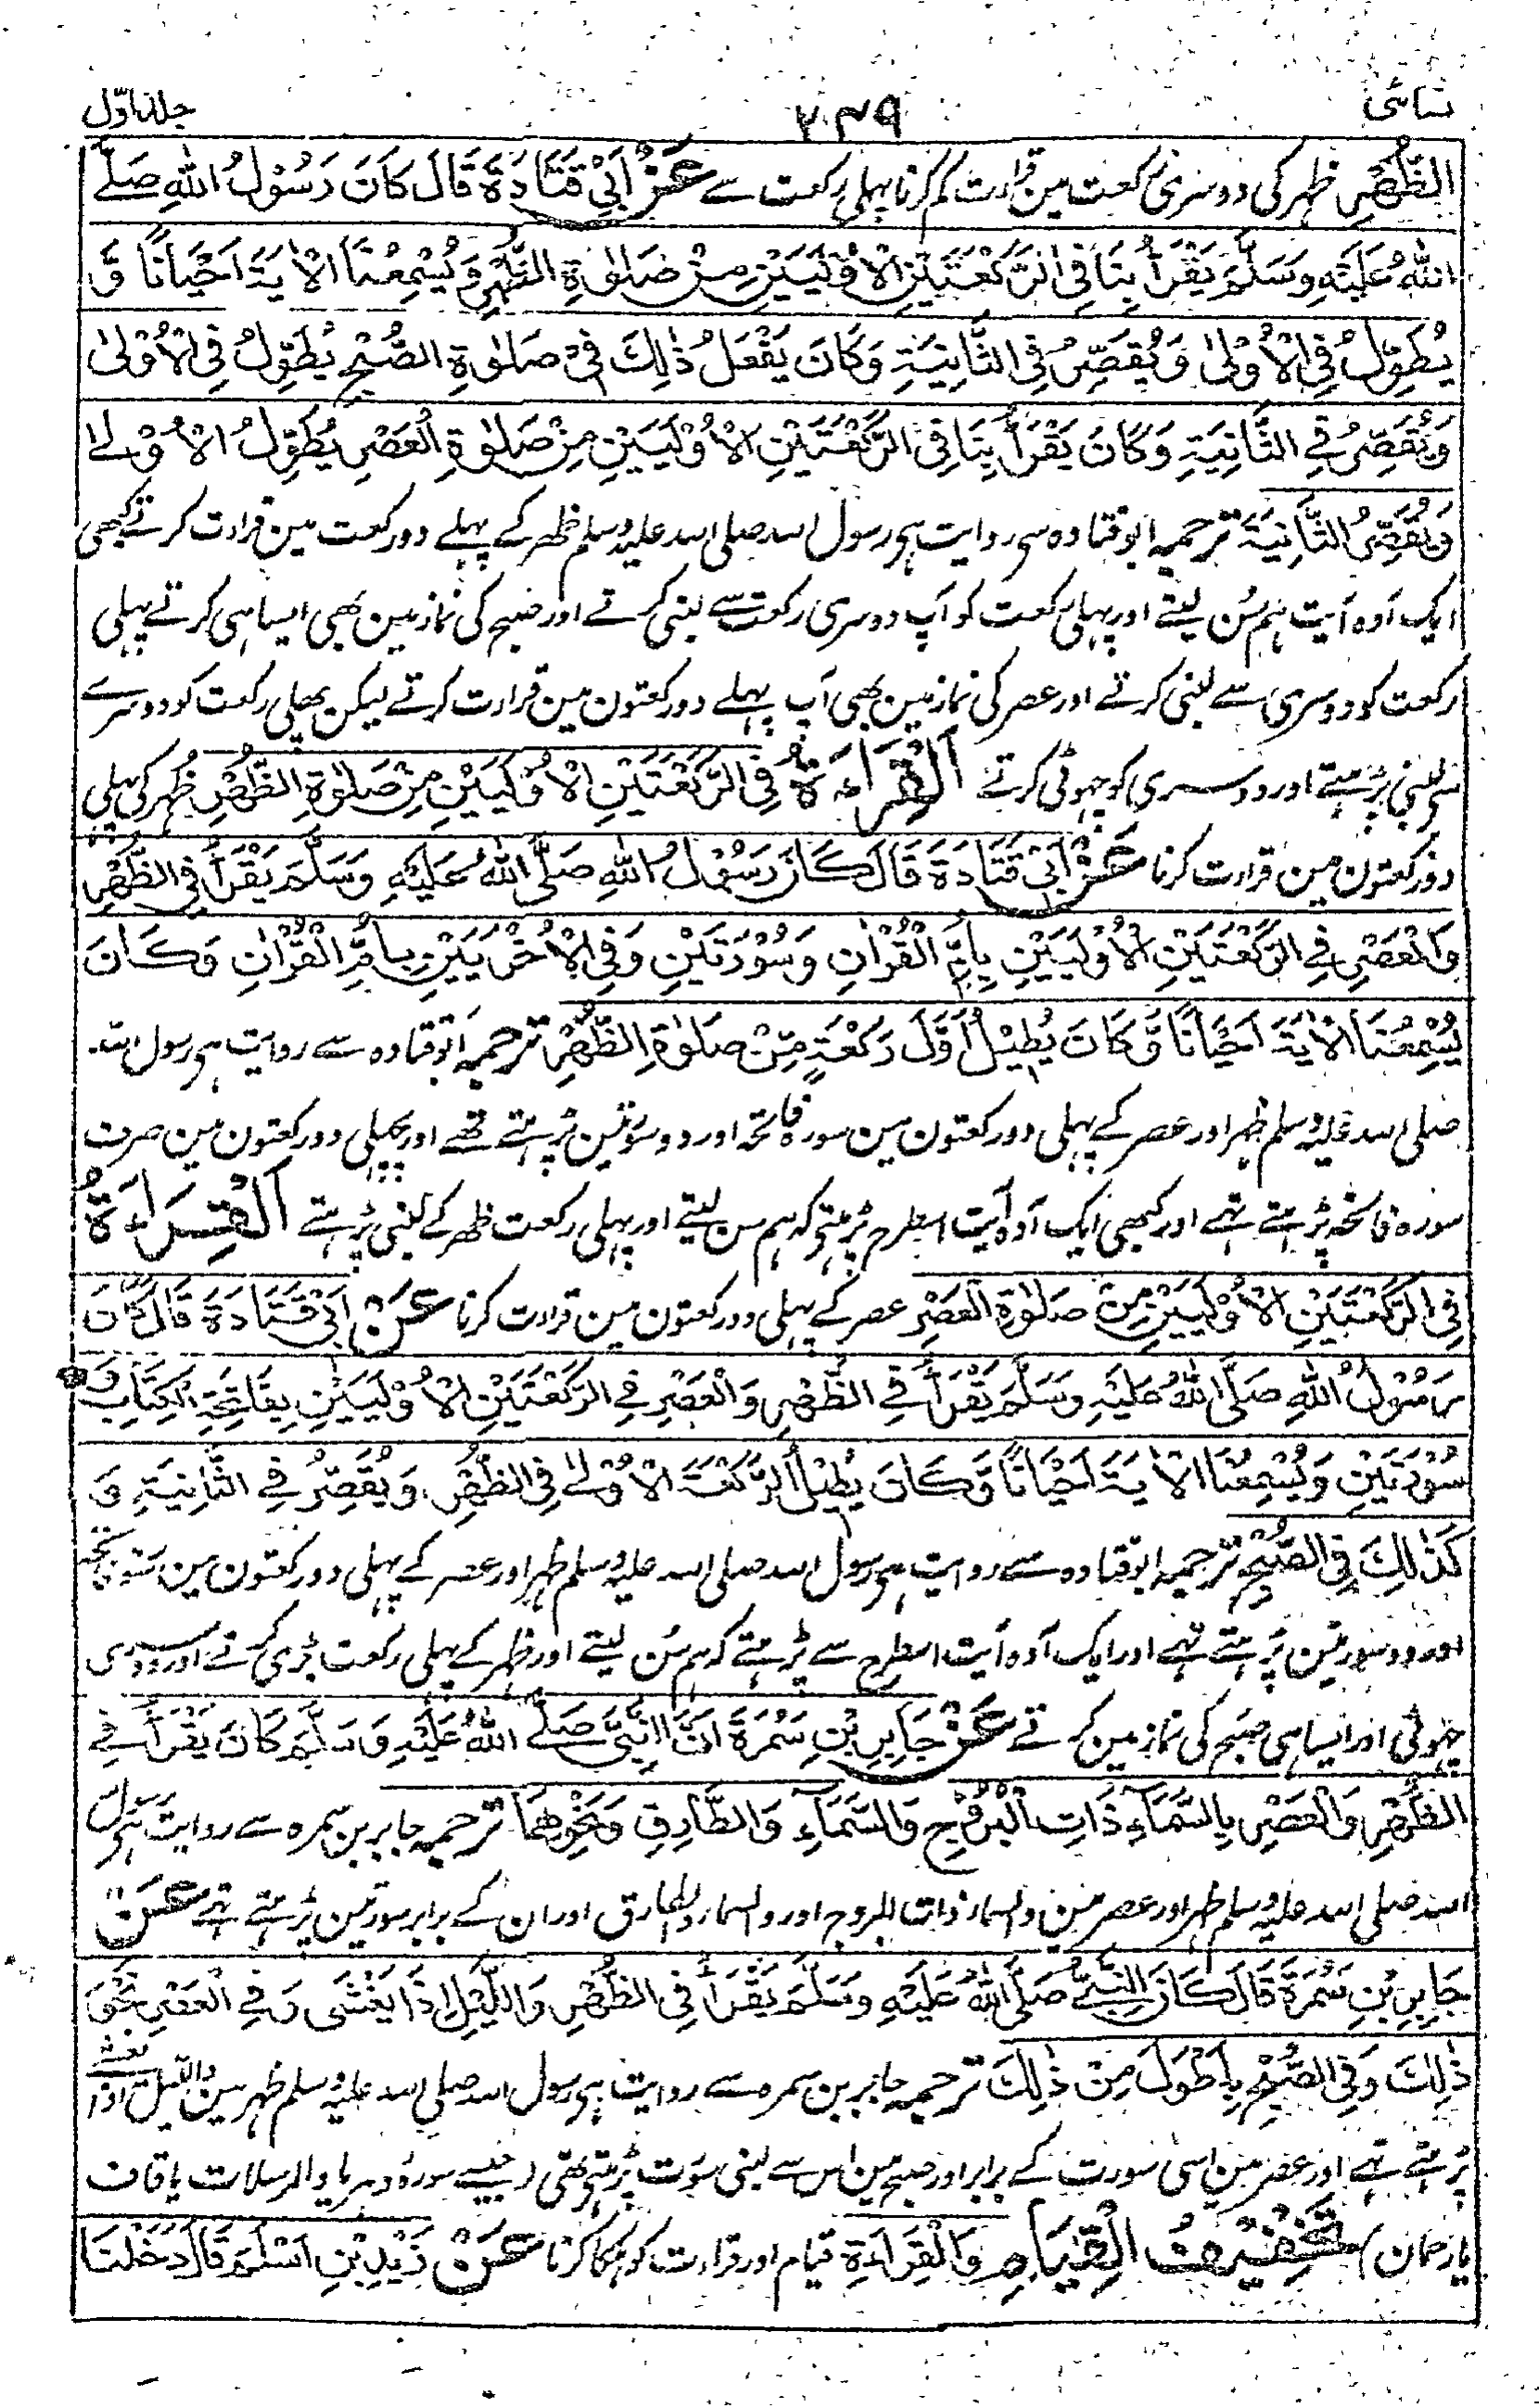 نسائی ۲۴۹ جلد اوّل
الظُّهْرِ ظہر کی دوسری رکعت مین قرارت کم کرنا پہلی رکعت سے عَنْ اَبِیْ قَتَادَةَ قَالَ كَانَ رَسُوْلُ اللهِ صَلَّے
اللهُ عَلَيْهِ وَسَلَّمَ يَقْرَأُ بِنَا فِی الرَّكْعَتَيْنِ الْاُوْلَيَيْنِ مِنْ صَلٰوةِ الظُّهْرِ وَيُسْمِعُنَا الْاٰيَةَ اَحْيَانًا وَّ
يُطَوِّلُ فِی الْاُوْلٰی وَيُقَصِّرُ فِی الثَّانِيَةِ وَكَانَ يَفْعَلُ ذٰلِكَ فِیْ صَلٰوةِ الصُّبْحِ يُطَوِّلُ فِی الْاُوْلٰی
وَيُقَصِّرُ فِے الثَّانِيَةِ وَكَانَ يَقْرَأُ بِنَا فِی الرَّكْعَتَيْنِ الْاُوْلَيَيْنِ مِنْ صَلٰوةِ الْعَصْرِ يُطَوِّلُ الْاُوْلٰے
وَيُقَصِّرُ الثَّانِيَةَ ترجمہ ابوقتادہ سی روایت ہی رسول اللہ صلی اللہ علیہ وسلم ظہر کے پہلے دو رکعت مین قرارت کرتے کبھی
ایک آدہ آیت ہم سُن لیتے اور پہلی رکعت کو آپ دوسری رکعت سے لنبی کرتے اور صبح کی نماز مین بھی ایسا ہی کرتے پہلی
رکعت کو دوسری سے لنبی کرتے اور عصر کی نماز مین بھی آپ پہلے دو رکعتون مین قرارت کرتے لیکن پہلی رکعت کو دوسرے
سی لنبی پڑہتے اور دوسری کو چہوٹی کرتے اَلْقِرَاءَةُ فِی الرَّكْعَتَيْنِ الْاُوْلَيَيْنِ مِنْ صَلٰوةِ الظُّهْرِ ظہر کی پہلی
دو رکعتون مین قرارت کرنا عَنْ اَبِیْ قَتَادَةَ قَالَ كَانَ رَسُوْلُ اللهِ صَلَّی اللهُ عَلَيْهِ وَسَلَّمَ يَقْرَأُ فِی الظُّهْرِ
وَالْعَصْرِ فِے الرَّكْعَتَيْنِ الْاُوْلَيَيْنِ بِاُمِّ الْقُرْاٰنِ وَسُوْرَتَيْنِ وَفِی الْاُخْرَيَيْنِ بِاُمِّ الْقُرْاٰنِ وَكَانَ
يُسْمِعُنَا الْاٰيَةَ اَحْيَانًا وَّكَانَ يُطِيْلُ اَوَّلَ رَكْعَةٍ مِّنْ صَلٰوةِ الظُّهْرِ ترجمہ ابوقتادہ سے روایت ہی رسول اللہ
صلی اللہ علیہ وسلم ظہر اور عصر کے پہلی دو رکعتون مین سورہ فاتحہ اور دو سورتین پڑہتے تھے اور پچھلی دو رکعتون مین صرف
سورہ فاتحہ پڑہتے تہے اور کبھی ایک آدہ آیت اسطرح پڑہتی کہ ہم سن لیتے اور پہلی رکعت ظہر کے لنبی پڑہتے اَلْقِرَاءَةُ
فِی الرَّكْعَتَيْنِ الْاُوْلَيَيْنِ مِنْ صَلٰوةِ الْعَصْرِ عصر کے پہلی دو رکعتون مین قرارت کرنا عَنْ اَبِیْ قَتَادَةَ قَالَ كَانَ
رَسُوْلُ اللهِ صَلَّی اللهُ عَلَيْهِ وَسَلَّمَ يَقْرَأُ فِے الظُّهْرِ وَالْعَصْرِ فِے الرَّكْعَتَيْنِ الْاُوْلَيَيْنِ بِفَاتِحَةِ الْكِتَابِ وَ
سُوْرَتَيْنِ وَيُسْمِعُنَا الْاٰيَةَ اَحْيَانًا وَّكَانَ يُطِيْلُ الرَّكْعَةَ الْاُوْلٰے فِی الظُّهْرِ وَيُقَصِّرُ فِے الثَّانِيَةِ وَ
كَذٰلِكَ فِی الصُّبْحِ ترجمہ ابوقتادہ سے روایت ہی رسول اللہ صلی اللہ علیہ وسلم ظہر اور عصر کے پہلی دو رکعتون مین
اور دو سورتین پڑہتے تہے اور ایک آدہ آیت اسطرح سے پڑہتے کہ ہم سُن لیتے اور ظہر کے پہلی رکعت بڑی کرتے اور دوسری
چہوٹی اور ایسا ہی صبح کی نماز مین کرتے عَنْ جَابِرِ بْنِ سَمُرَةَ اَنَّ النَّبِیَّ صَلَّے اللهُ عَلَيْهِ وَسَلَّمَ كَانَ يَقْرَأُ فِے
الظُّهْرِ وَالْعَصْرِ بِالسَّمَآءِ ذَاتِ الْبُرُوْجِ وَالسَّمَآءِ وَالطَّارِقِ وَنَحْوِهِمَا ترجمہ جابر بن سمرہ سے روایت ہی رسول
اللہ صلی اللہ علیہ وسلم ظہر اور عصر مین والسمار ذات البروج اور والسمار والطارق اور ان کے برابر سورتین پڑہتے تہے عَنْ
جَابِرِ بْنِ سَمُرَةَ قَالَ كَانَ النَّبِیُّ صَلَّی اللهُ عَلَيْهِ وَسَلَّمَ يَقْرَأُ فِی الظُّهْرِ وَاللَّيْلِ اِذَا يَغْشٰی وَفِے الْعَصْرِ نَحْوَ
ذٰلِكَ وَفِی الصُّبْحِ بِاَطْوَلَ مِنْ ذٰلِكَ ترجمہ جابر بن سمرہ سے روایت ہی رسول اللہ صلی اللہ علیہ وسلم ظہر مین واللیل اذا یغشے
پڑہتے تہے اور عصر مین اسی سورت کے برابر اور صبح مین اس سے لنبی سورت پڑہتی تھی (جیسے سورہ دہر یا والمرسلات یا قاف
یا رحمان) تَخْفِيْفُ الْقِيَامِ وَالْقِرَاءَةِ قیام اور قرارت کو ہلکا کرنا عَنْ زَيْدِ بْنِ اَسْلَمَ قَالَ دَخَلْنَا